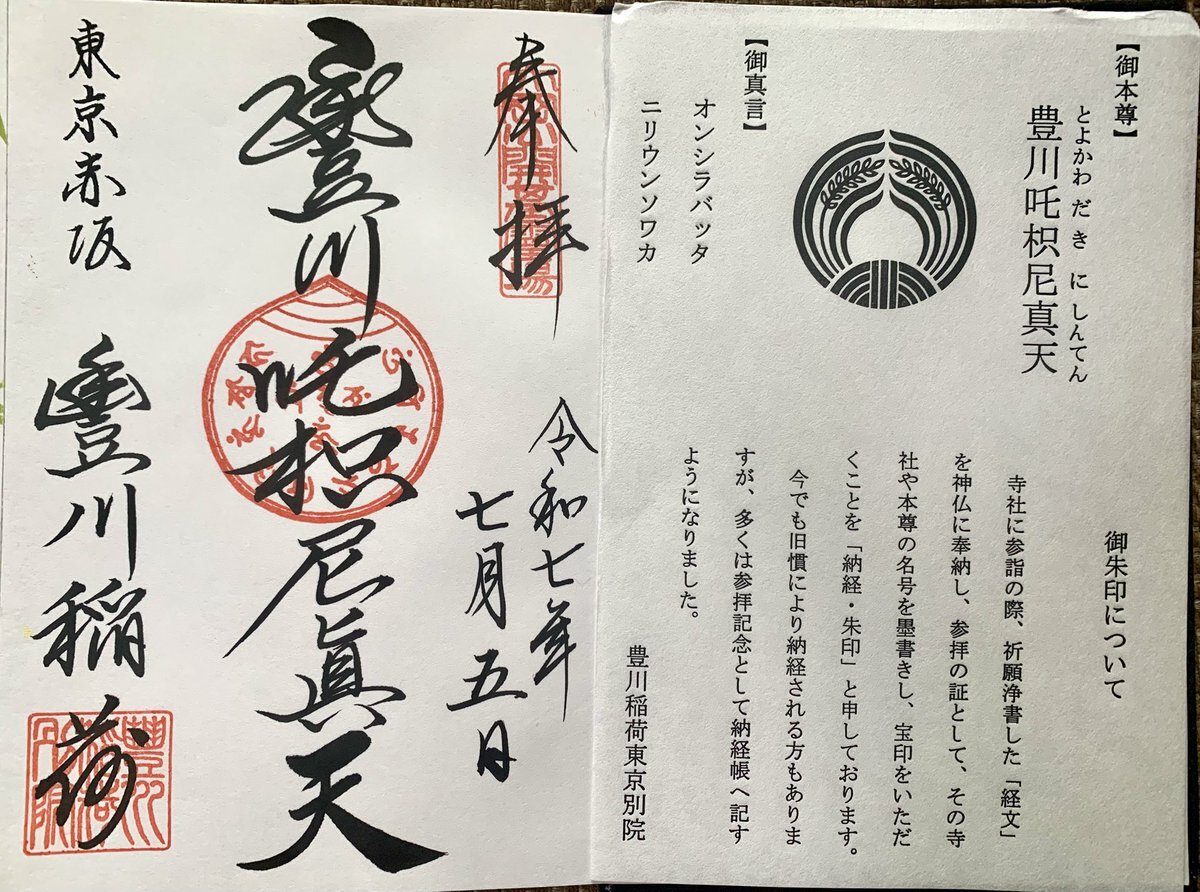 【御本尊】
とよかわだきにしんてん
豊川吒枳尼真天
【御真言】
オンシラバッタ
ニリウンソワカ
御朱印について
寺社に参詣の際、祈願浄書した「経文」
を神仏に奉納し、参拝の証として、その寺
社や本尊の名号を墨書きし、宝印をいただ
くことを「納経・朱印」と申しております。
今でも旧慣により納経される方もありま
すが、多くは参拝記念として納経帳へ記す
ようになりました。
豊川稲荷東京別院
奉拝
令和七年
七月五日
豐川吒枳尼眞天
東京赤坂
豐川稲荷